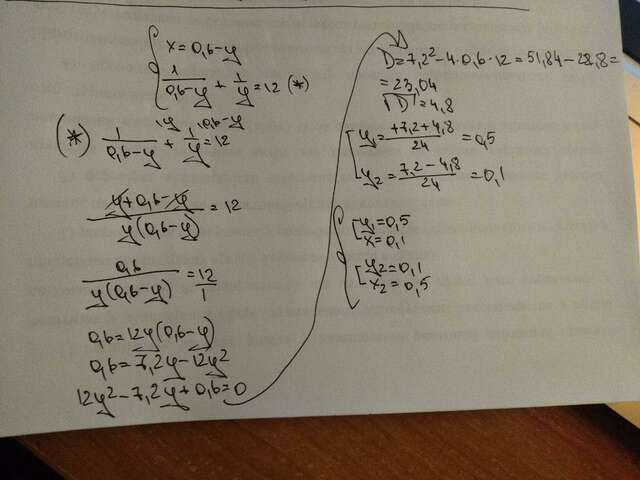 { x = 0,6-y
1/(0,6-y) + 1/y = 12 (*)
(*) 1/(0,6-y) \y + 1/y \0,6-y = 12
(y+0,6-y)/(y(0,6-y)) = 12
0,6/(y(0,6-y)) = 12/1
0,6 = 12y(0,6-y)
0,6 = 7,2y - 12y²
12y² - 7,2y + 0,6 = 0
D = 7,2² - 4·0,6·12 = 51,84 - 28,8 =
= 23,04
√D = 4,8
[ y₁ = (+7,2+4,8)/24 = 0,5
y₂ = (7,2-4,8)/24 = 0,1
{ [ y₁ = 0,5
x = 0,1
[ y₂ = 0,1
x₂ = 0,5